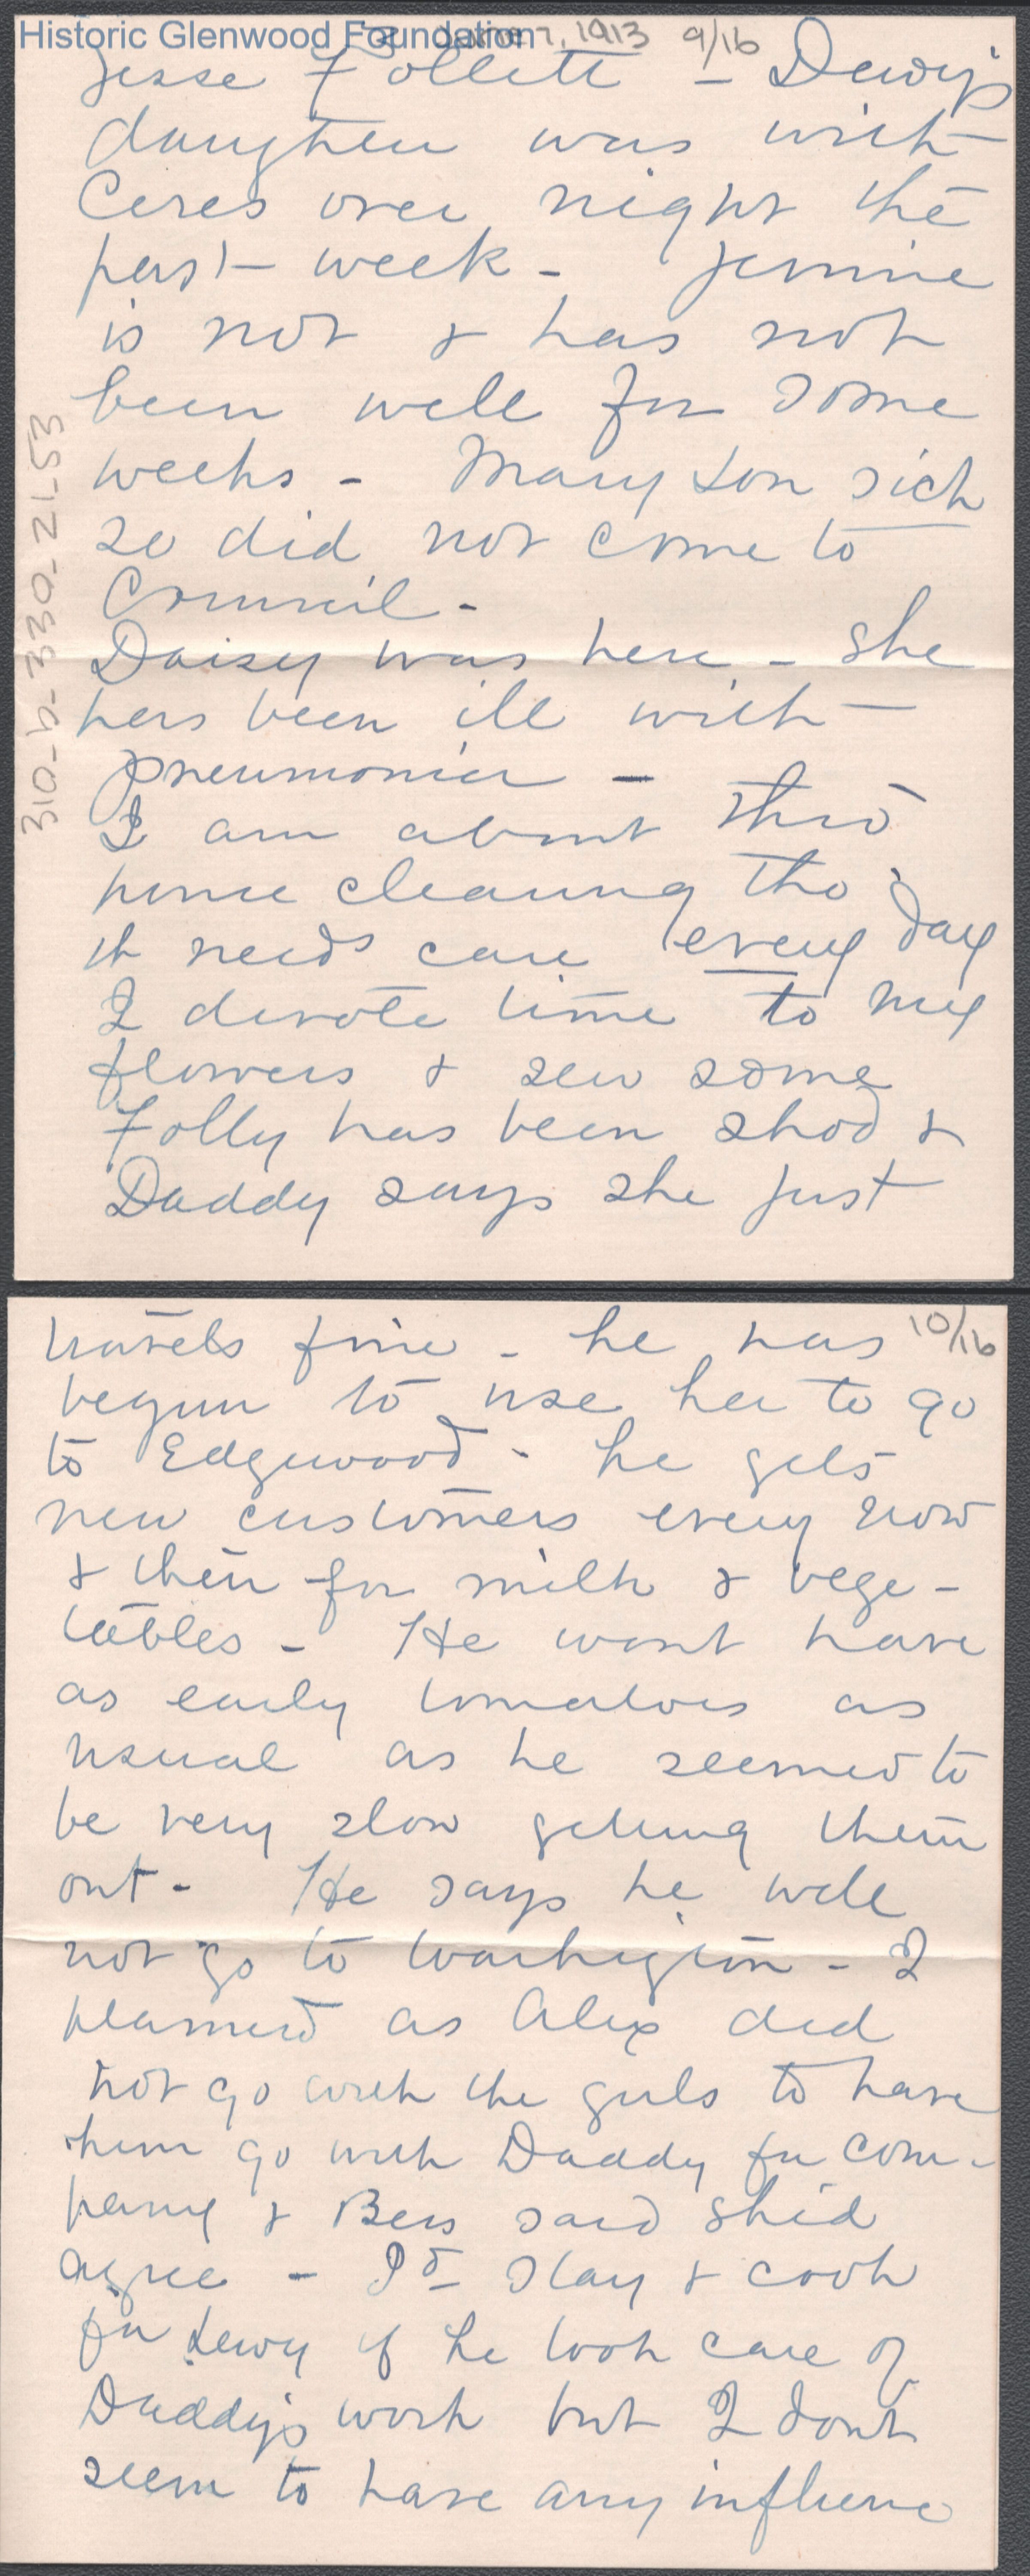 Historic Glenwood Foundation
7, 1913 9/16
Jesse Follett – Dewy's
daughter was with
Ceres over night the
past week – Jennie
is not & has not
been well for some
weeks – Mary Lou sick
so did not come to
Council –
Daisy was here – She
has been ill with
pneumonia –
I am about thro
house cleaning tho
it needs care every day
I devote time to my
flowers & sew some
Folly has been shod &
Daddy says she just
310-b-330-21-53
10/16
travels fine – he has
begun to use her to go
to Edgewood – he gets
new customers every now
& then for milk & vege-
tables – He wont have
as early tomatoes as
usual as he seemed to
be very slow getting them
out – He says he will
not go to Washington – I
planned as Alex did
not go with the girls to have
him go with Daddy for com-
pany & Bess said she'd
agree – I'd stay & cook
for Dewy if he took care of
Daddy's work but I dont
seem to have any influence